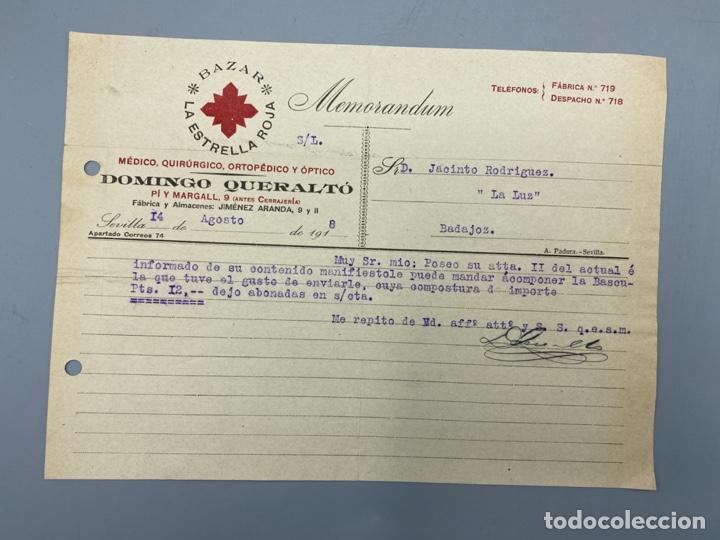 BAZAR
LA ESTRELLA ROJA
Memorandum
TELÉFONOS: FÁBRICA N.° 719
DESPACHO N.° 718
S/L.
MÉDICO, QUIRÚRGICO, ORTOPÉDICO Y ÓPTICO
DOMINGO QUERALTÓ
PÍ Y MARGALL, 9 (ANTES CERRAJERÍA)
Fábrica y Almacenes: JIMÉNEZ ARANDA, 9 y II
Sevilla 14 de Agosto de 1918
Apartado Correos 74
Sr D. Jacinto Rodriguez.
" La Luz"
Badajoz.
A. Padura.-Sevilla.
Muy Sr. mio: Poseo su atta. II del actual é
informado de su contenido manifiestole puede mandar acomponer la Bascu-
la que tuve el gusto de enviarle, cuya compostura d importe
Pts. I2,-- dejo abonadas en s/cta.
==========
Me repito de Vd. affº attº y S. S. q.e.s.m.
todocoleccion